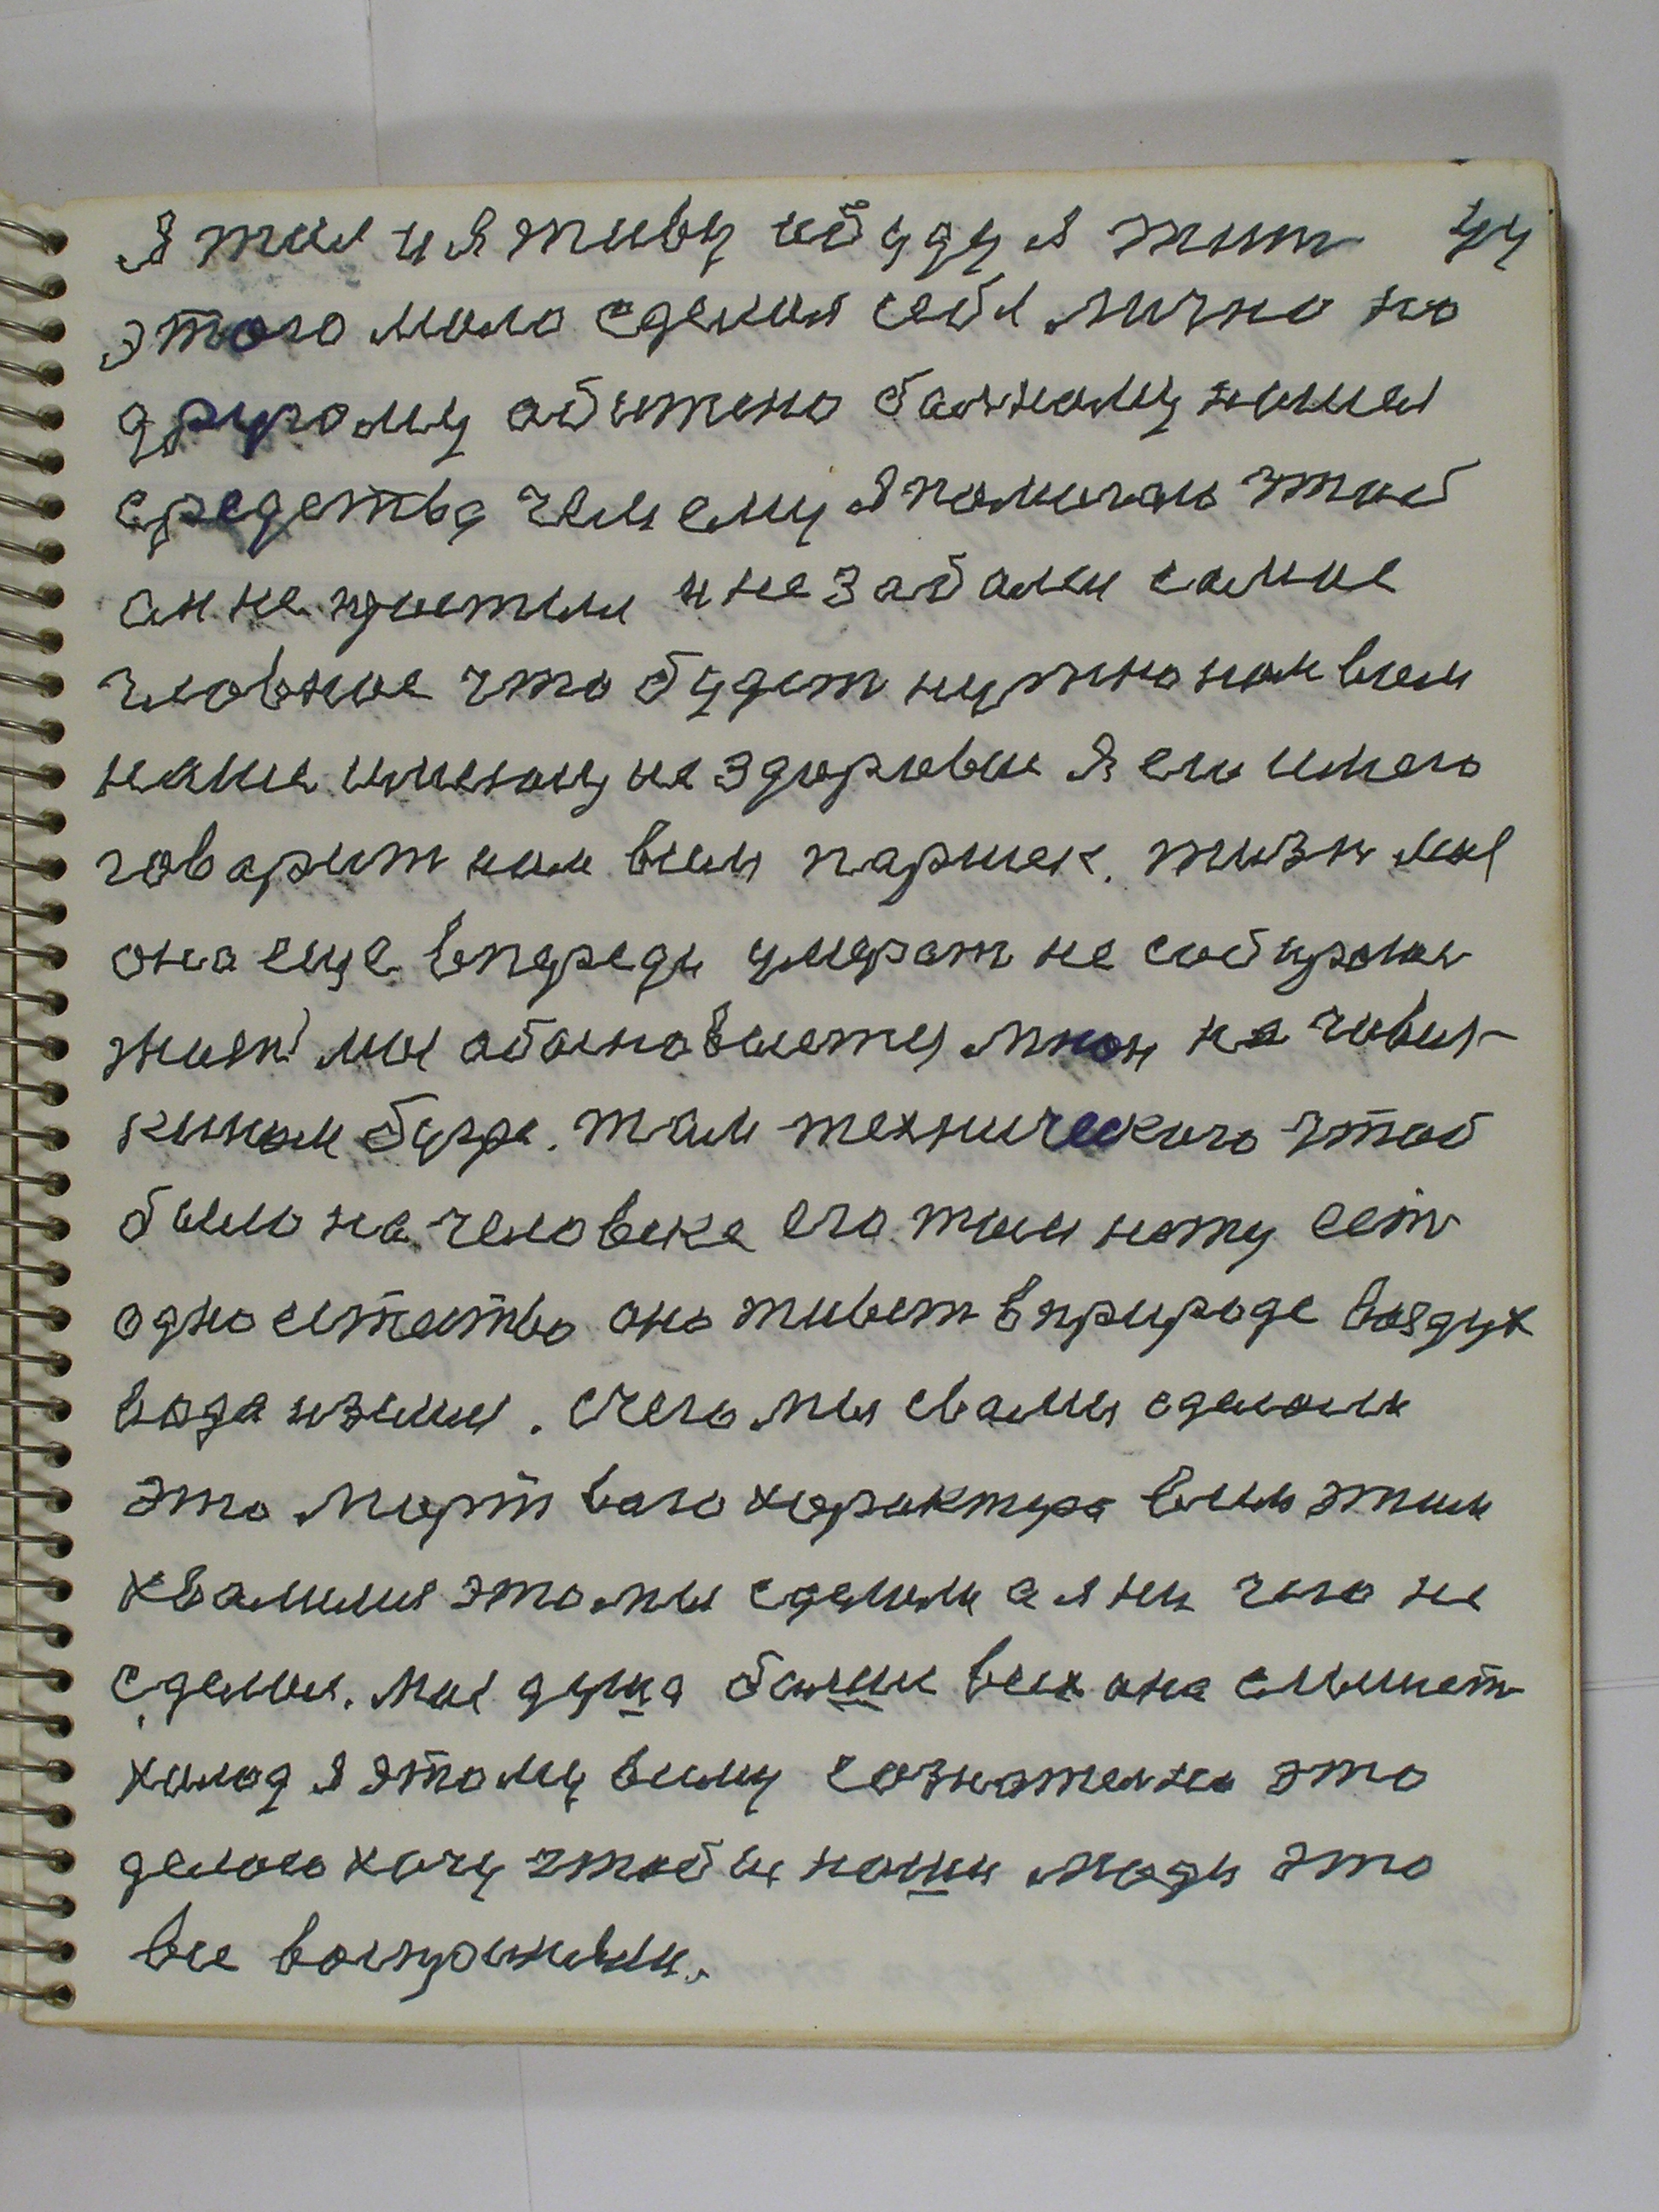 я жил и я живу и буду я жит 44
этого мало сделия себя лично но
другому обижено больному нашел
средства чем ему я помогаю чтоб
он не простыл и не забалел самое
главное что будет нужно нам всем
наше имеющие здоровие я ево имею
говарит нам всем паршек. жизня моя
она еще впереди умерат не собираюсь
жизн моя обосновается мною на чивил
кином бугре. там технического чтоб
было на человека его там нету ест
одно естество оно живет в природе воздух
вода и земля. с чего мы с вами сделоли
это мортваго характера всем этим
хвалимся это мы сделали а я ни чего не
сделал. моя душа больши всех она слышет
холод я этому всему сознателно это
делаю хочу чтобы наши люди это
все воспринели.